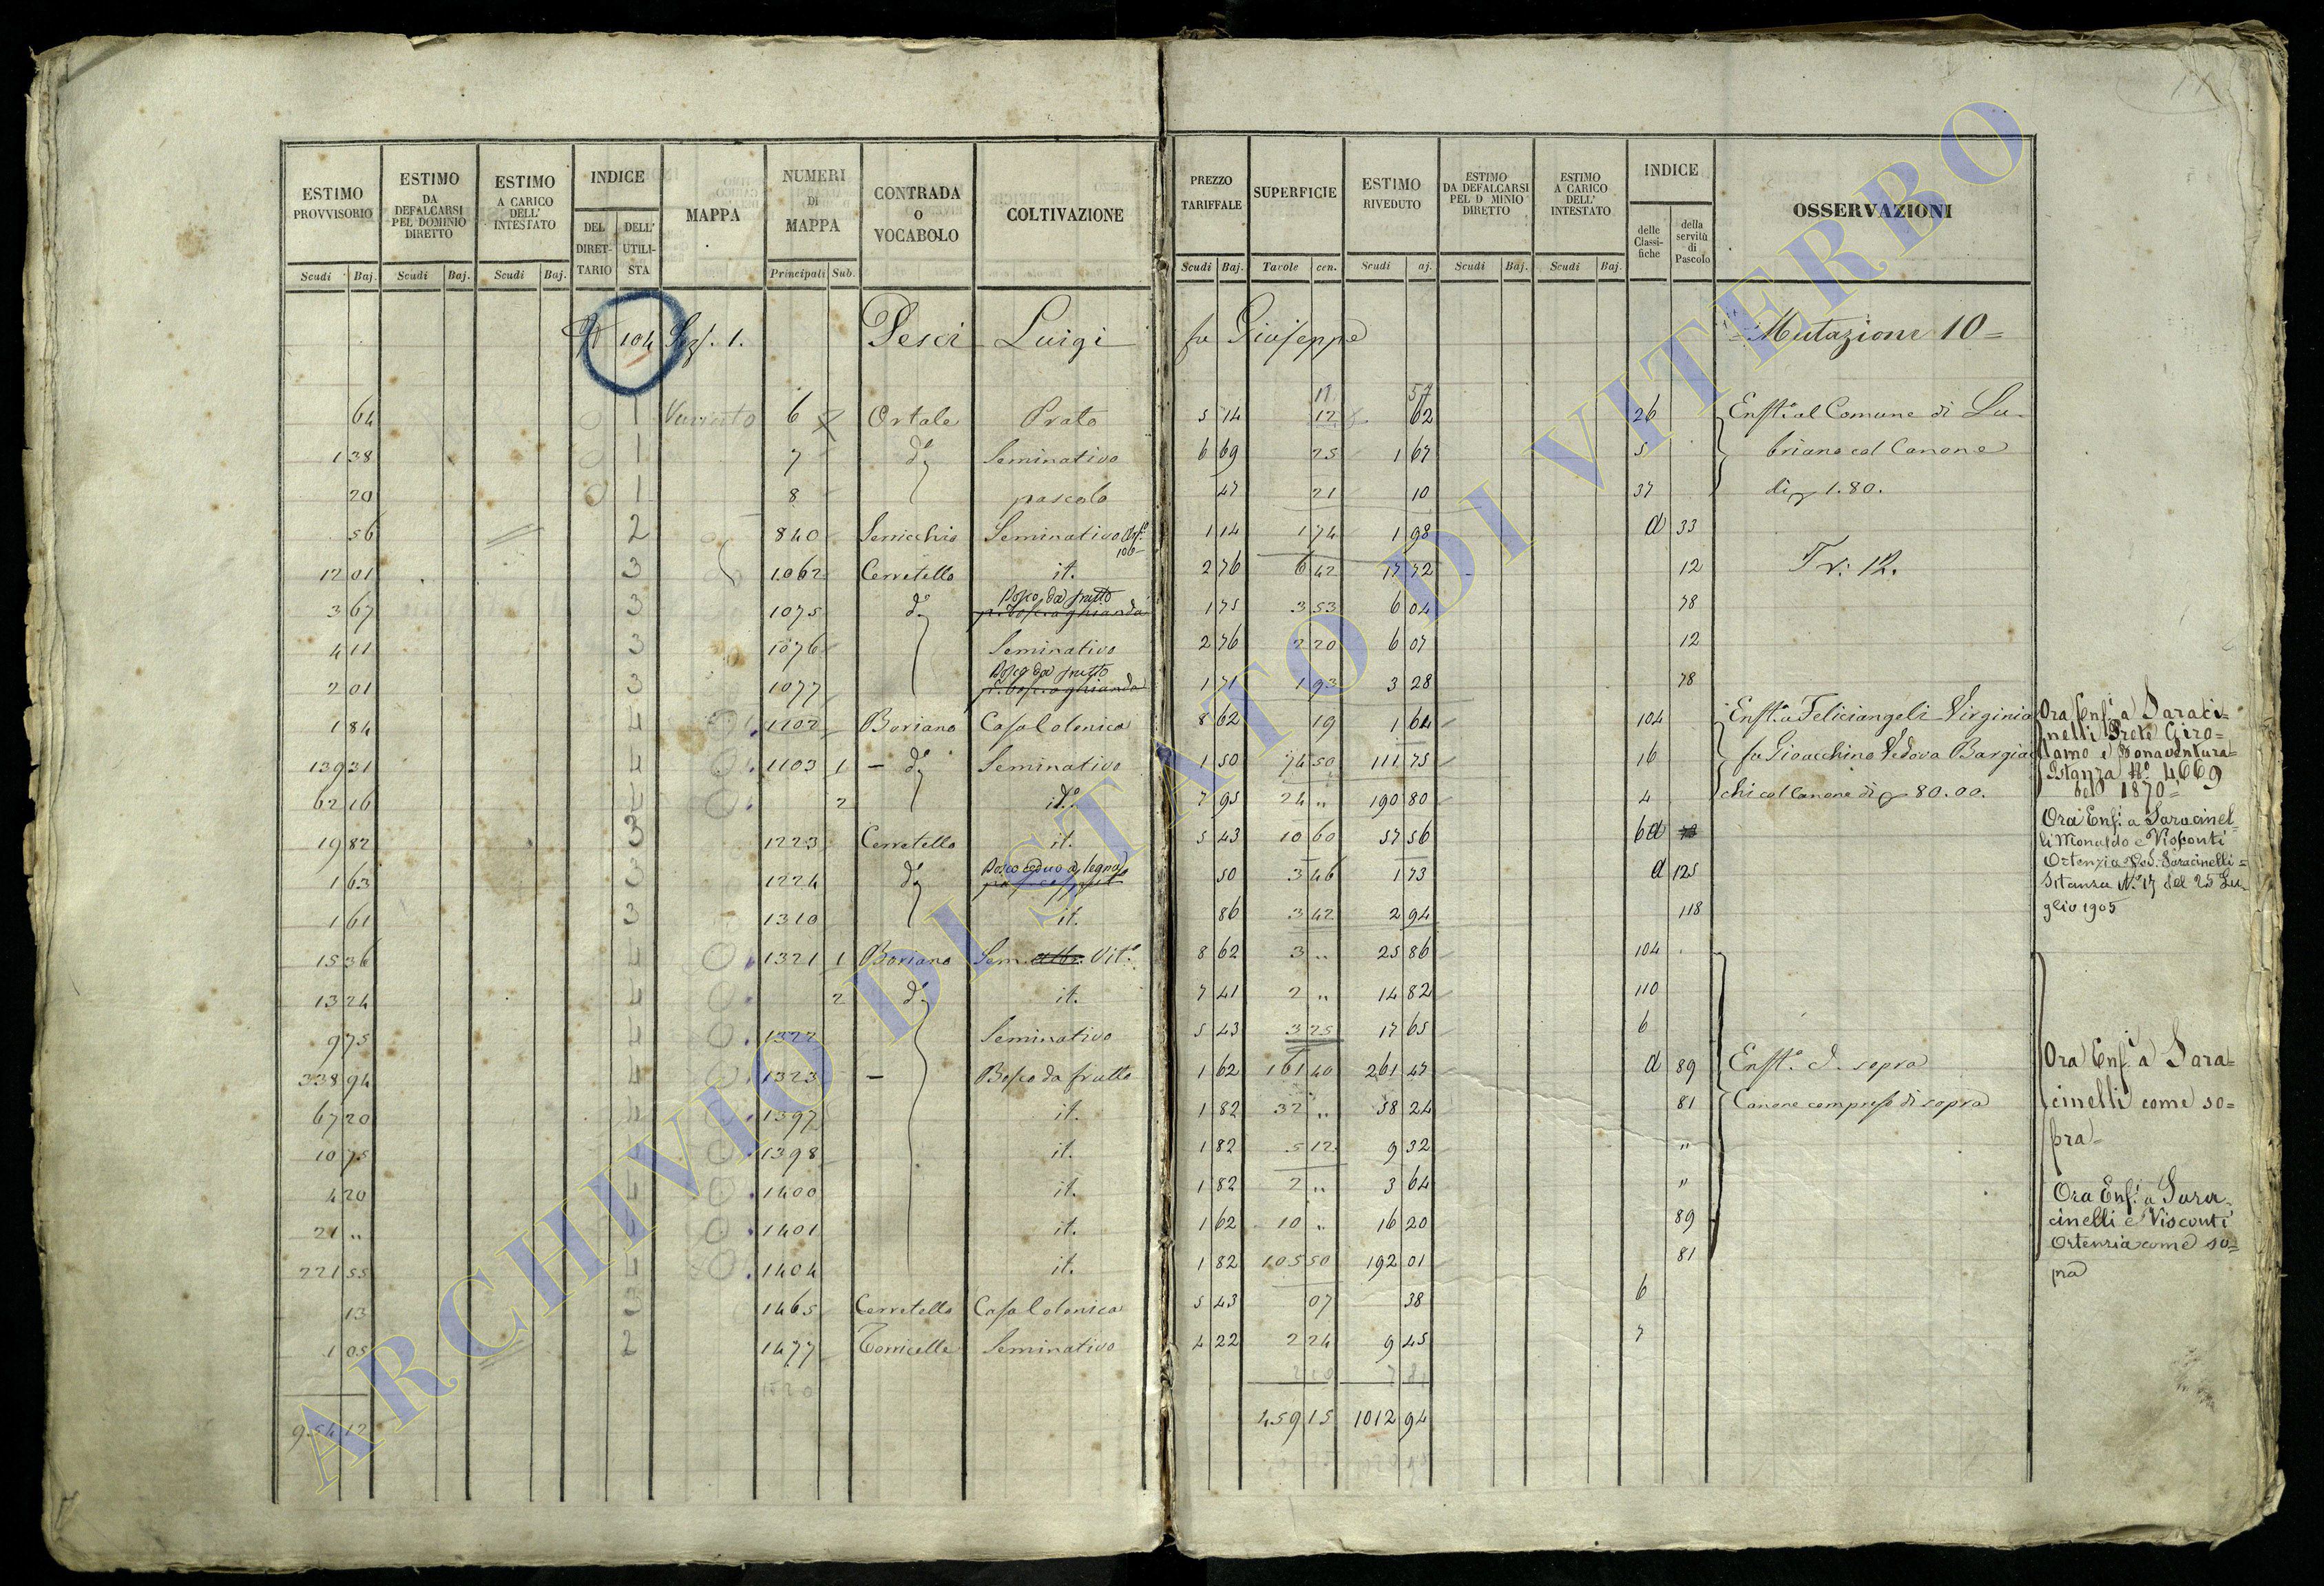 ESTIMO PROVVISORIO Scudi Baj.
ESTIMO DA DEFALCARSI PEL DOMINIO DIRETTO Scudi Baj.
ESTIMO A CARICO DELL' INTESTATO Scudi Baj.
INDICE DEL DIRETTARIO DELL' UTILISTA
MAPPA
NUMERI DI MAPPA Principali Sub.
CONTRADA o VOCABOLO
COLTIVAZIONE
PREZZO TARIFFALE Scudi Baj.
SUPERFICIE Tavole cen.
ESTIMO RIVEDUTO Scudi aj.
ESTIMO DA DEFALCARSI PEL D MINIO DIRETTO Scudi Baj.
ESTIMO A CARICO DELL' INTESTATO Scudi Baj.
INDICE delle Classifiche della servitù di Pascolo
OSSERVAZIONI
104 1. Pesci Luigi fu Giuseppe Mutazione 10=
64 1 6 Ortale Prato 5 14 12 62 26 al Comune di Lu-
1 38 1 7 do Seminativo 6 69 25 1 67 5 briano col Canone
20 1 8 pascolo 47 21 10 37 di 1.80.
56 2 840 Seminativo 1 14 1 74 1 98 d 33
12 01 3 1062 Cerretello it. 2 76 6 42 17 72 12 Tr: 12.
3 67 3 1075 do Bosco da frutto 1 75 3 53 6 04 78
4 11 3 1076 Seminativo 2 76 2 20 6 07 12
2 01 3 1077 Bosco da frutto 1 71 1 93 3 28 78
1 84 4 1102 Boriano Casa Colonica 8 62 19 1 64 104 Feliciangeli Virginia
139 31 4 1103 1 do Seminativo 1 50 74 50 111 75 16 fu Gioacchino Vedova Bargiac
62 16 4 2 id. 7 95 24 " 190 80 4 chi col Canone di 80.00.
19 82 3 1223 Cerretello it. 5 43 10 60 57 56 6 d
1 63 3 1224 do Bosco ceduo da legna 50 3 46 1 73 d 125
1 61 3 1310 it. 86 3 42 2 94 118
15 36 4 1321 1 Boriano Sem. Vit. 8 62 3 " 25 86 104
13 24 4 2 do it. 7 41 2 " 14 82 110
9 75 4 1322 Seminativo 5 43 3 25 17 65 6
338 94 4 1323 Bosco da frutto 1 62 161 40 261 47 d 89 sopra
67 20 4 1397 it. 1 82 32 " 58 24 81 Canone compreso di sopra
10 75 4 1398 it. 1 82 5 12 9 32 "
4 20 4 1400 it. 1 82 2 " 3 64 "
21 " 4 1401 it. 1 62 10 " 16 20 89
221 55 4 1404 it. 1 82 105 50 192 01 81
13 3 1465 Cerretello Casa Colonica 5 43 07 38 6
1 05 2 1477 Torricella Seminativo 4 22 2 24 9 45 7
954 12 459 15 1012 94
Ora Enf. a Saraci=
nelli Prete Giro=
lamo e Bonaventura=
Istanza No 4669
del 1870=
Ora Enf. a Saracinel=
li Monaldo e Visconti
Ortenzia Ved. Saracinelli=
Istanza N. 17 del 25 Lu-
glio 1905
Ora Enf. a Sara=
cinelli come so=
pra=
Ora Enf. a Sara-
cinelli e Visconti
Ortenzia come so=
pra
ARCHIVIO DI STATO DI VITERBO